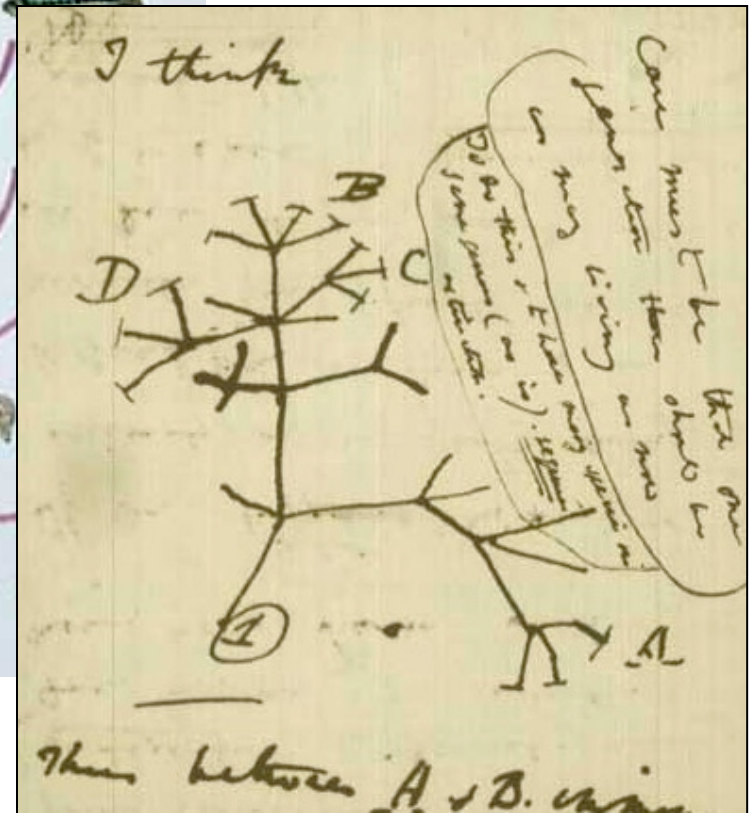 I think
B
D
C
1
A
Case must be that one
generation then should be
as many living as now
To do this & to have many species in
same genus (as is). requires
extinction.
Thus between A & B.